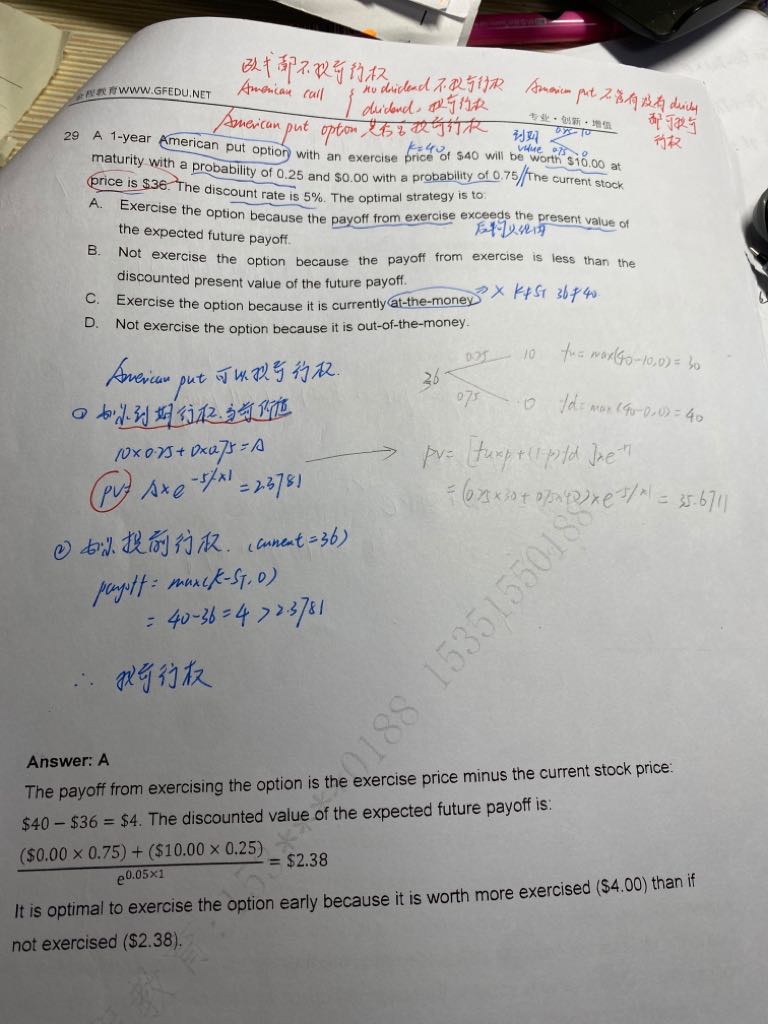 欧式都不提前行权
American call { no dividend 不提前行权
dividend, 提前行权
American put 不管有没有 divid
都可提前
行权
程教育 WWW.GFEDU.NET
专业·创新·增值
American put option 是否提前行权
到期
value
0.25 10
0.75 0
K=40
29 A 1-year American put option with an exercise price of $40 will be worth $10.00 at
maturity with a probability of 0.25 and $0.00 with a probability of 0.75. The current stock
price is $36. The discount rate is 5%. The optimal strategy is to:
A. Exercise the option because the payoff from exercise exceeds the present value of
the expected future payoff.
B. Not exercise the option because the payoff from exercise is less than the
discounted present value of the future payoff.
C. Exercise the option because it is currently at-the-money.
⇒ × K≠ST 36≠40
D. Not exercise the option because it is out-of-the-money.
American put 可以提前行权.
① 如果到期行权,当前价值
10×0.25+0×0.75=A
PV= A×e^-5%×1 =2.3781
36
0.25 10 fu= max(40-10,0)= 30
0.75 0 fd= max(40-0,0)= 40
PV= [fu×p+(1-p)fd]×e^-rT
=(0.25×30+0.75×40)×e^-5%×1 = 35.6711
② 如果提前行权. (current=36)
payoff= max(K-ST,0)
= 40-36=4>2.3781
∴ 提前行权
153515501 88
Answer: A
The payoff from exercising the option is the exercise price minus the current stock price:
$40 – $36 = $4. The discounted value of the expected future payoff is:
($0.00 × 0.75) + ($10.00 × 0.25)
e^0.05×1
= $2.38
It is optimal to exercise the option early because it is worth more exercised ($4.00) than if
not exercised ($2.38).